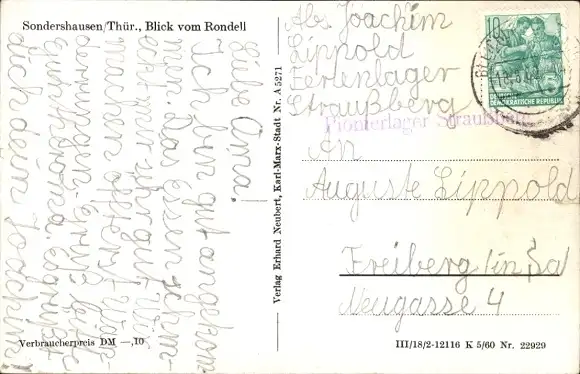 Sondershausen/Thür., Blick vom Rondell
Liebe Oma!
Ich bin gut angekom
men. Das Essen schm-
eckt mir sehr gut. Wir
machen öffert Wan-
derungen. Grüß bitte
Dich dein Joachim!
Verbraucherpreis DM —,10
Verlag Erhard Neubert, Karl-Marx-Stadt Nr. A 5271
Abs. Joachim
Lippold
Ferienlager
Straußberg
Pionierlager Straußberg
10
DEUTSCHE
DEMOKRATISCHE REPUBLIK
An
Auguste Lippold
Freiberg/in Sa
Neugasse 4
III/18/2-12116 K 5/60 Nr. 22929